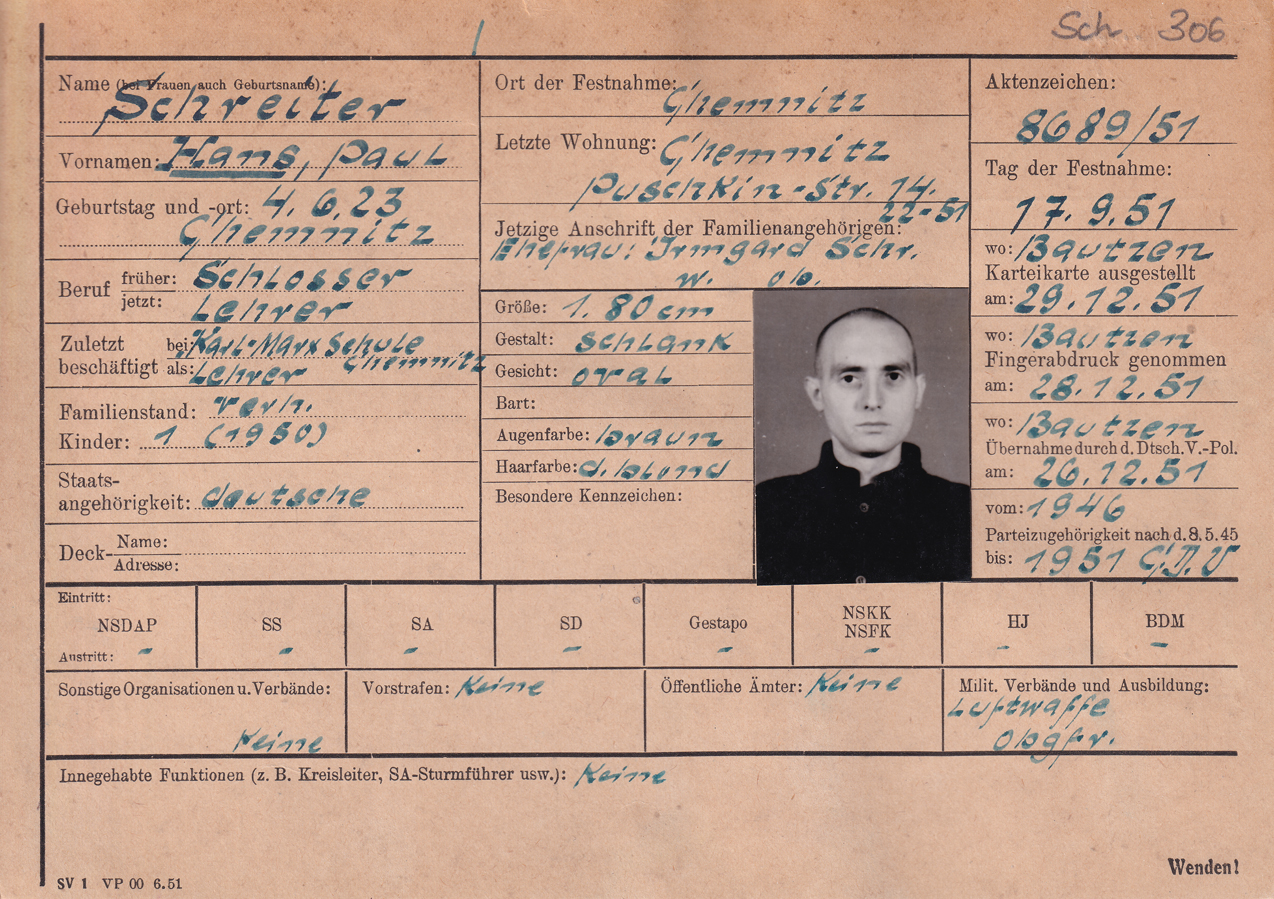 Sch 306
Name (bei Frauen auch Geburtsname):
Schreiter
Vornamen: Hans, Paul
Geburtstag und -ort: 4. 6. 23
Chemnitz
Beruf früher: Schlosser
jetzt: Lehrer
Zuletzt beschäftigt bei: Karl-Marx Schule
Chemnitz
als: Lehrer
Familienstand: verh.
Kinder: 1 (1950)
Staats-
angehörigkeit: deutsche
Deck- Name:
Adresse:
Ort der Festnahme: Chemnitz
Letzte Wohnung: Chemnitz
Puschkin-Str. 14.
22-51
Jetzige Anschrift der Familienangehörigen:
Ehefrau: Irmgard Schr.
w. ob.
Größe: 1.80 cm
Gestalt: schlank
Gesicht: oval
Bart:
Augenfarbe: braun
Haarfarbe: d. blond
Besondere Kennzeichen:
Aktenzeichen:
8689/51
Tag der Festnahme:
17. 9. 51
wo: Bautzen
Karteikarte ausgestellt
am: 29. 12. 51
wo: Bautzen
Fingerabdruck genommen
am: 28. 12. 51
wo: Bautzen
Übernahme durch d. Dtsch. V.-Pol.
am: 26. 12. 51
vom: 1946
Parteizugehörigkeit nach d. 8. 5. 45
bis: 1951 C.D.U
Eintritt:
NSDAP SS SA SD Gestapo NSKK NSFK HJ BDM
Austritt: - - - - - - - -
Sonstige Organisationen u. Verbände:
Keine
Vorstrafen: Keine
Öffentliche Ämter: Keine
Milit. Verbände und Ausbildung:
Luftwaffe
Obgfr.
Innegehabte Funktionen (z. B. Kreisleiter, SA-Sturmführer usw.): Keine
Wenden!
SV 1 VP 00 6.51